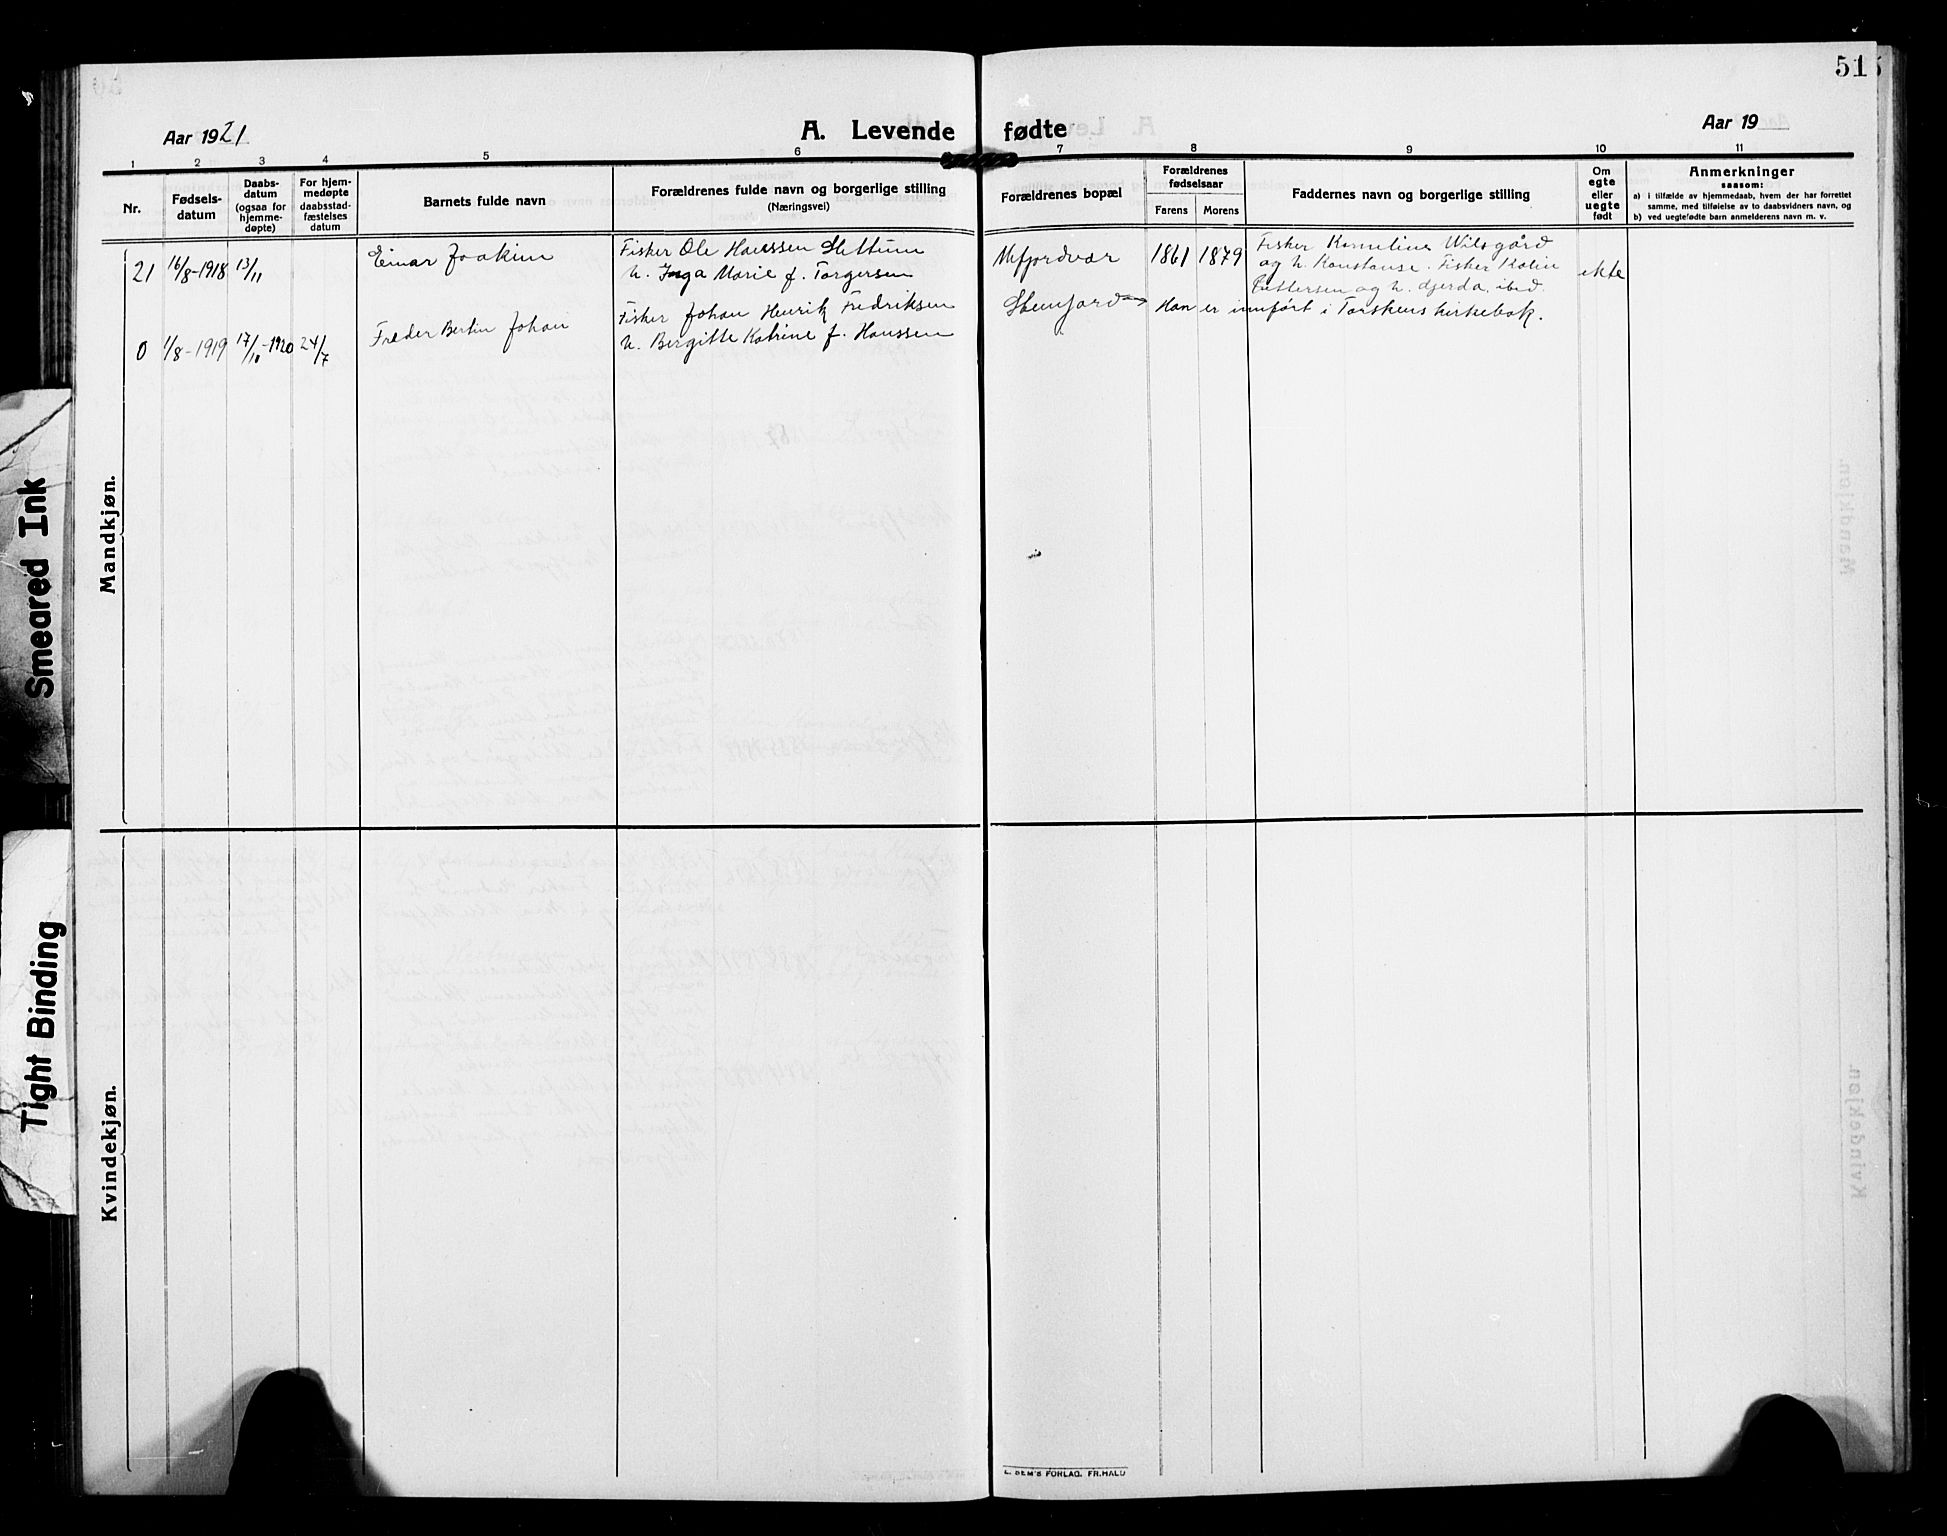 51
Aar 1921
A. Levende fødte
Aar 19
1 2 3 4 5 6 7 8 9 10 11
Nr.
Fødsels-
datum
Daabs-
datum
(ogsaa for
hjemme-
døpte)
For hjem-
medøpte
daabsstad-
fæstelses
datum
Barnets fulde navn
Forældrenes fulde navn og borgerlige stilling
(Næringsvei)
Forældrenes bopæl
Forældrenes
fødselsaar
Farens Morens
Faddernes navn og borgerlige stilling
Om
egte
eller
uegte
født
Anmerkninger
saasom:
a) i tilfælde av hjemmedaab, hvem der har forrettet
samme, med tilføielse av to daabsvidners navn, og
b) ved uegtefødte barn anmelderens navn m. v.
21 16/8-1918 13/11 Einar Joakim
Fisker Ole Hanssen Slettum
h. Inga Marie f. Torgersen
Mefjordvær 1861 1879
Fisker Kornelius Wilsgård
og h. Konstanse. Fisker Kolin
Pettersen og h. Gjerda, ibid.
ekte
0 1/8-1919 17/10-1920 24/7 Freder Bertin Johan
Fisker Johan Henrik Fredriksen
h. Bergitte Katrine f. Hanssen
Stenfjord Han er innført i Torskens kirkebok.
Mandkjøn.
Kvindekjøn.
Smeared Ink
Tight Binding
E. SEM'S FORLAG, FR.HALD